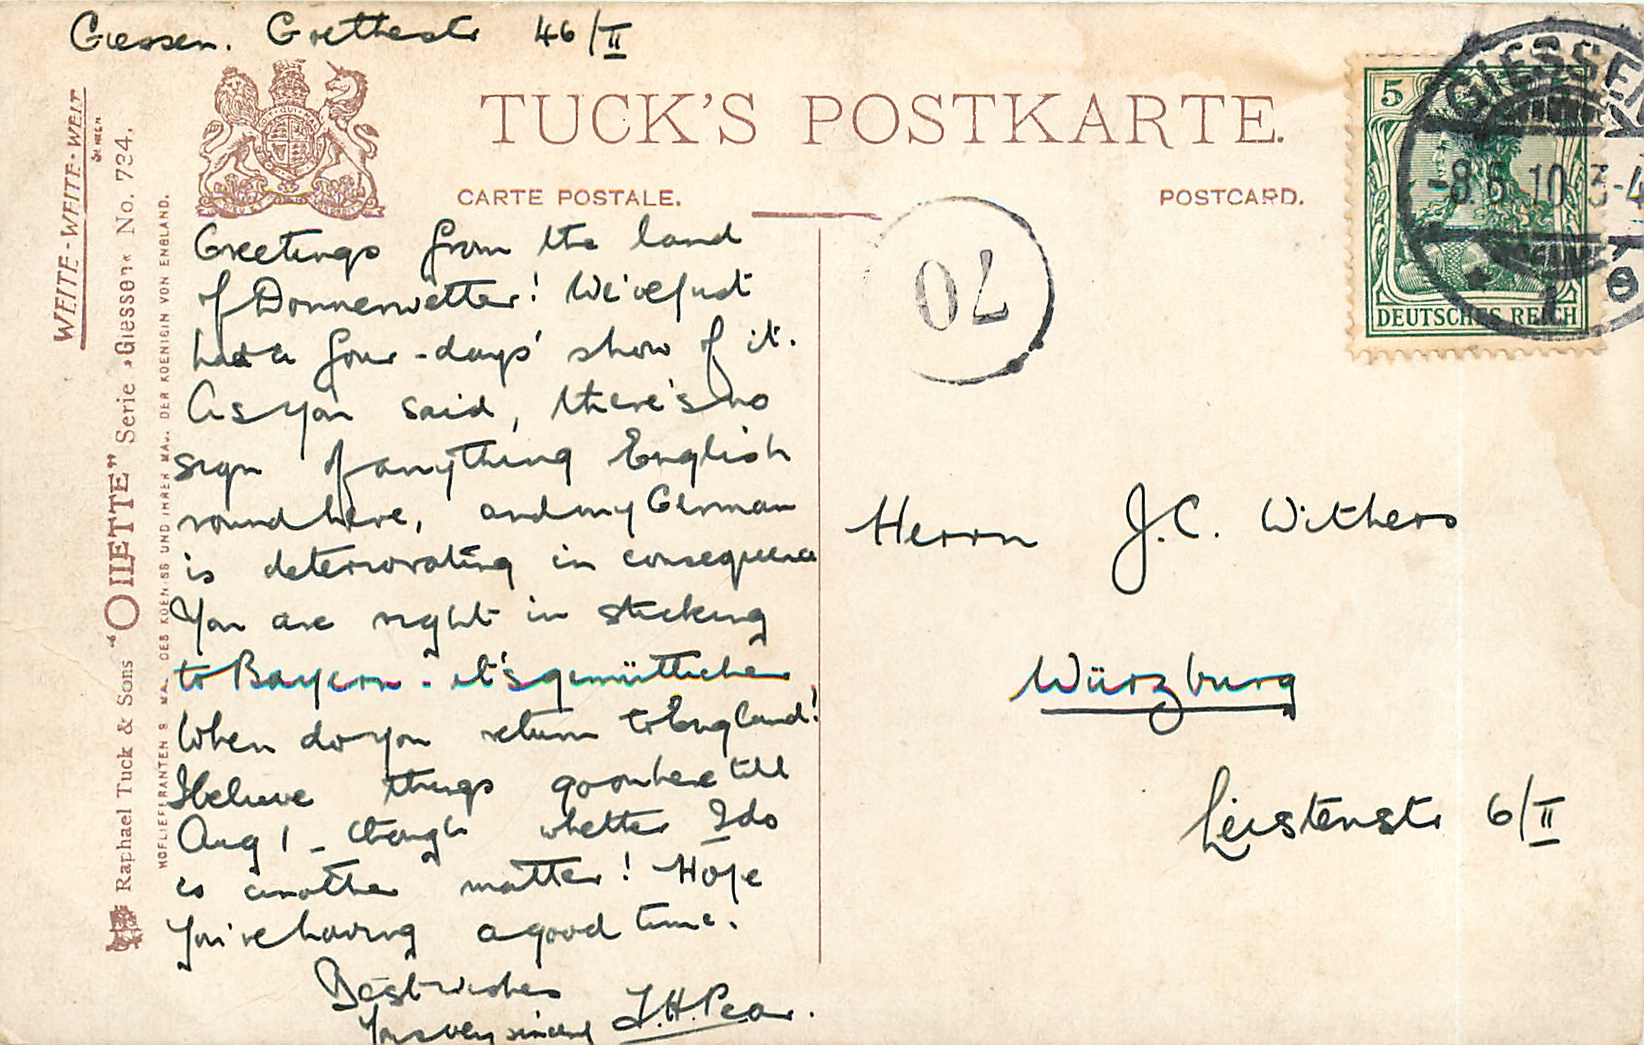 Giessen. Goethestr 46/II
TUCK'S POSTKARTE.
CARTE POSTALE.
POSTCARD.
5
DEUTSCHES REICH
GIESSEN
-8.6.10.3-4
70
WELTE-WEITE-WELT
Raphael Tuck & Sons "OILETTE" Serie »Giessen« No. 734.
HOFLIEFERANTEN S. MAJ. DES KOENIGS UND IHRER MAJ. DER KOENIGIN VON ENGLAND.
Greetings from the land
of Donnerwetter! We've just
had a four-days' show of it.
As you said, there's no
sign of anything English
round here, and my German
is deteriorating in consequence
You are right in sticking
to Bayern - it's gemütlicher
When do you return to England!
I believe things go on here till
Aug 1 - though whether I do
is another matter! Hope
you're having a good time.
Best wishes
Yours very sincerely
J.H. Pear.
Herrn J.C. Withers
Würzburg
Leistenstr 6/II